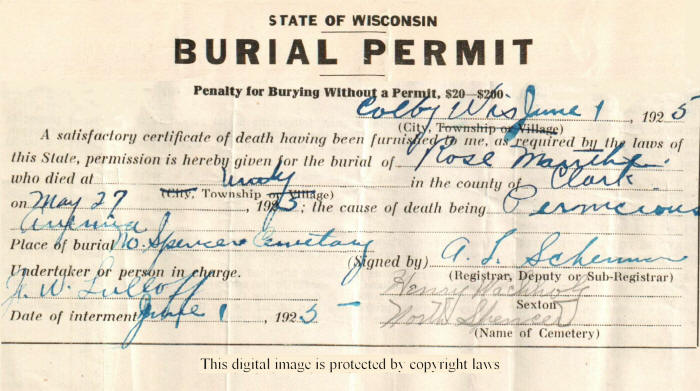 STATE OF WISCONSIN
BURIAL PERMIT
Penalty for Burying Without a Permit, $20—$200.
Colby Wis June 1, 1925
(City, Township or Village)
A satisfactory certificate of death having been furnished to me, as required by the laws of
this State, permission is hereby given for the burial of Rose
who died at Unity in the county of Clark
(City, Township or Village)
on May 27, 1925; the cause of death being Pernicious
Anemia
Place of burial No. Spencer Cemetary
(Signed by) A. L. Scherman
Undertaker or person in charge. (Registrar, Deputy or Sub-Registrar)
Henry
Sexton
Date of interment June 1, 1925 North Spencer
(Name of Cemetery)
This digital image is protected by copyright laws